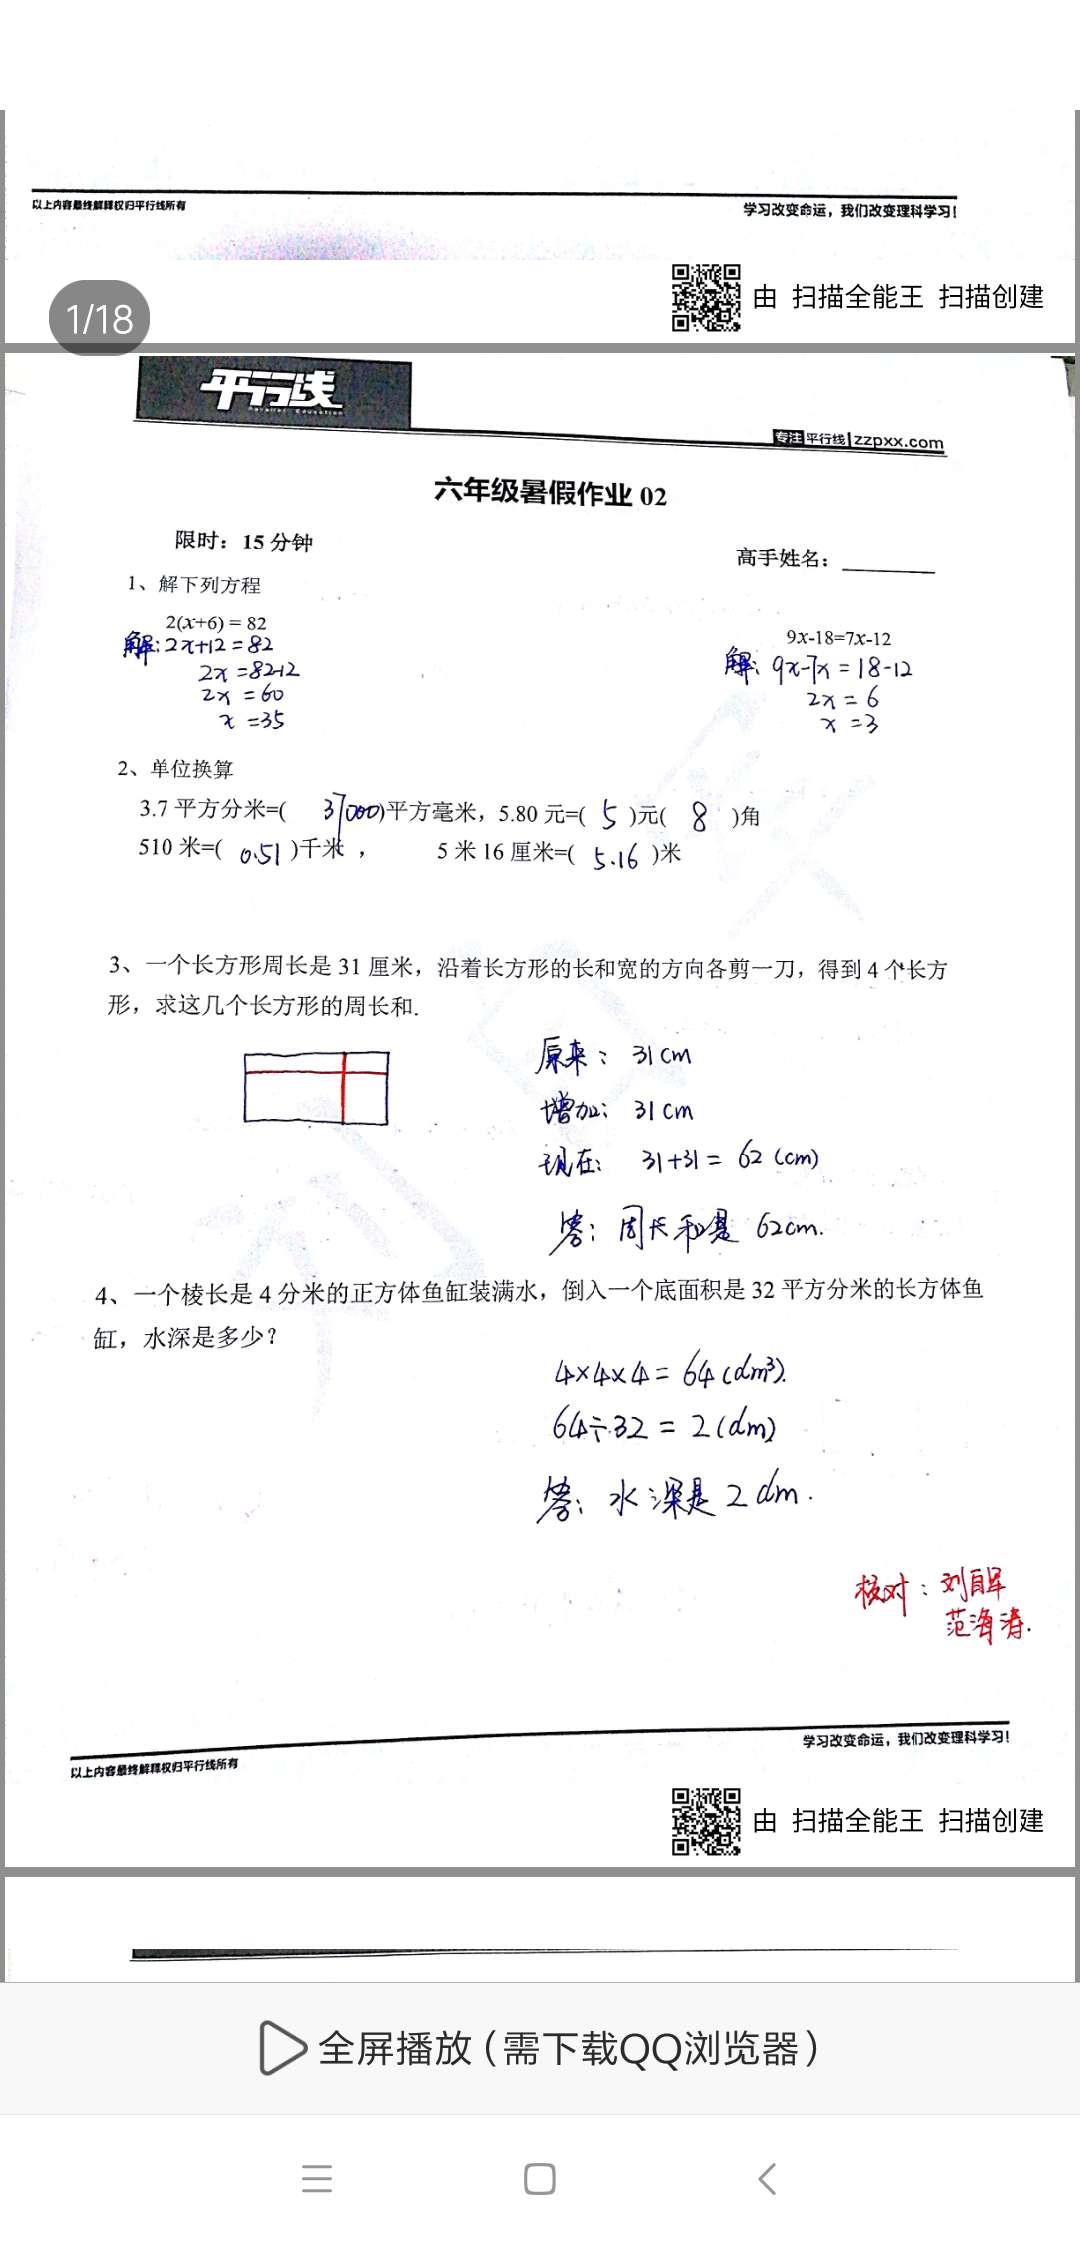 以上内容最终解释权归平行线所有
学习改变命运，我们改变理科学习！
由 扫描全能王 扫描创建
1/18
平行线
专注 平行线 | zzpxx.com
六年级暑假作业 02
限时：15 分钟
高手姓名：
1、解下列方程
2(x+6) = 82
解: 2x+12=82
2x =82-12
2x =60
x =35
9x-18=7x-12
解: 9x-7x=18-12
2x = 6
x =3
2、单位换算
3.7 平方分米=( 37000)平方毫米，5.80 元=( 5 )元( 8 )角
510 米=( 0.51 )千米 ， 5 米 16 厘米=( 5.16 )米
3、一个长方形周长是 31 厘米，沿着长方形的长和宽的方向各剪一刀，得到 4 个长方
形，求这几个长方形的周长和.
原来： 31cm
增加: 31cm
现在: 31+31= 62 (cm)
答: 周长和是 62cm.
4、一个棱长是 4 分米的正方体鱼缸装满水，倒入一个底面积是 32 平方分米的长方体鱼
缸，水深是多少？
4×4×4= 64(dm³).
64÷32 = 2(dm)
答: 水深是 2dm.
核对: 刘
范海涛.
学习改变命运，我们改变理科学习！
以上内容最终解释权归平行线所有
由 扫描全能王 扫描创建
全屏播放（需下载QQ浏览器）